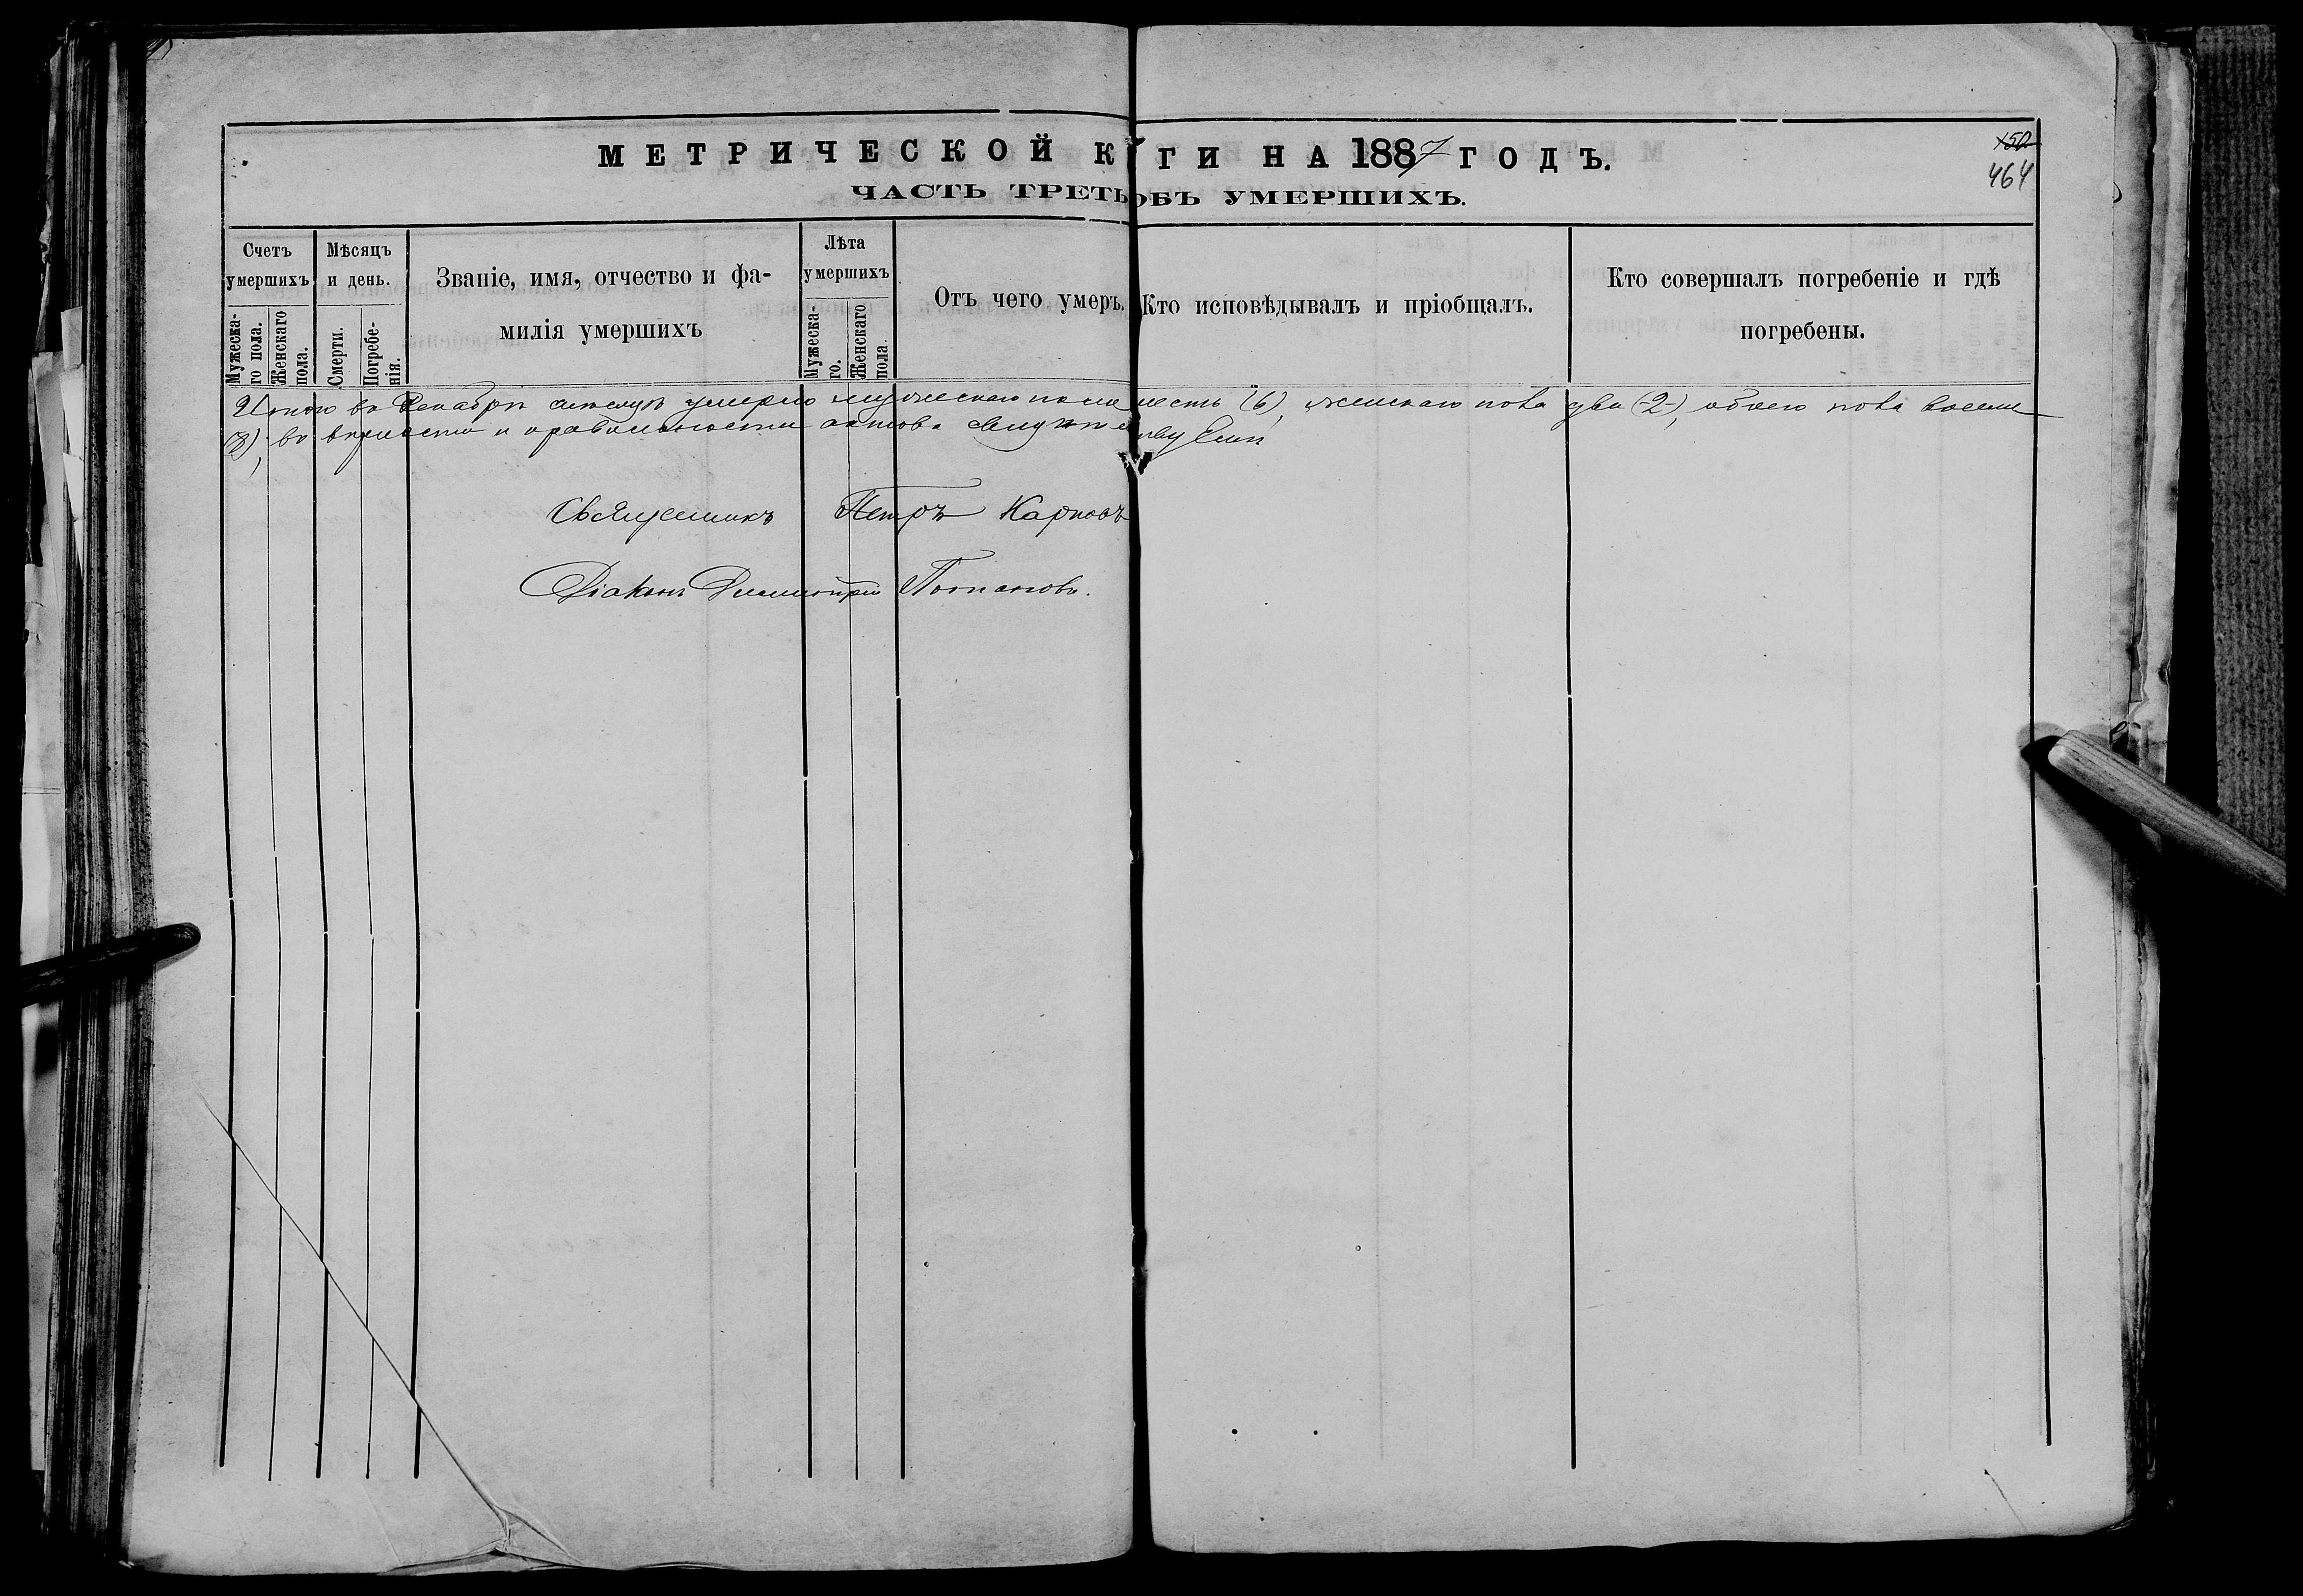 МЕТРИЧЕСКОЙ К ГИ НА 1887 ГОДЪ.
150
464
ЧАСТЬ ТРЕТЬ ОБЪ УМЕРШИХЪ.
Счетъ умершихъ
Мужеска-го пола.
Женскаго пола.
Мѣсяцъ и день.
Смерти.
Погребе-нія.
Званіе, имя, отчество и фа-
милія умершихъ
Лѣта умершихъ
Мужеска-го.
Женскаго пола.
Отъ чего умеръ.
Кто исповѣдывалъ и пріобщалъ.
Кто совершалъ погребеніе и гдѣ
погребены.
Итого въ Декабрѣ мѣсяцѣ умерло мужескаго пола шесть (6), женскаго пола два (2), обоего пола восемь
(8), въ вѣрности и
Священникъ Петръ Карповъ
Діаконъ Димитрій Потаповъ.